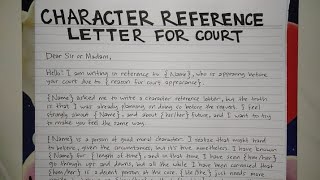 CHARACTER REFERENCE
LETTER FOR COURT
Dear Sir or Madam,
Hello! I am writing in reference to {Name}, who is appearing before
your court due to {reason for court appearance}.
{Name} asked me to write a character reference letter, but the truth
is that I was already planning on doing so before the request. I feel
strongly about {Name}, and about {his/her} future, and I want to try
to make you feel the same way.
{Name} is a person of good moral character. I realize that might hard
to believe, given the circumstances, but it's true nonetheless. I have known
{Name} for {length of time}, and in that time I have seen {him/her}
go through ups and downs, but all the while I have been convinced that
{he/she} is a decent person at the core. {He/She} just needs more